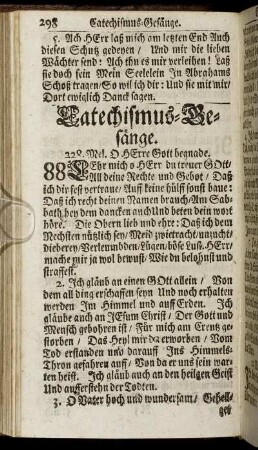 298 Catechismus-Gesänge.
5. Ach HErr laß mich am letzten End Auch
diesen Schutz gedeyen / Und mir die lieben
Wächter send: Ach thu es mir verleihen! Laß
sie doch sein Mein Seelelein In Abrahams
Schoß tragen/So wil ich dir: Und sie mit mir/
Dort ewiglich Danck sagen.
Catechismus-Ge-
sänge.
228. Mel. O HErre Gott begnade.
88 LEhr mich o HErr du treuer GOtt/
All deine Rechte und Gebot / Daß
ich dir fest vertraue/ Auff keine hülff sonst baue:
Daß ich recht deinen Namen brauch/Am Sab-
bath, bey dem dancken auch Und beten dein wort
höre. Die Obern lieb und ehre: Daß ich dem
Nechsten nützlich sey/ Meid zwietracht/unzucht/
dieberey/Verleumbden/Lügen/böse Lust. HErr/
mache mir ja wol bewust Wie du belohnst und
straffest.
2. Ich gläub an einen GOtt allein / Von
dem all ding erschaffen seyn Und noch erhalten
werden Im Himmel und auff Erden. Ich
gläube auch an JEsum Christ / Der Gott und
Mensch gebohren ist / Für mich am Creutz ge-
storben / Das Heyl mir da erworben / Vom
Tod erstanden un̄ darauff Ins Himmels-
Thron gefahren auf/ Von da er uns sein war-
ten heist. Ich gläub auch an den heilgen Geist
Und aufferstehn der Todten.
3. O Vater hoch und wundersam/ Geheil-
get